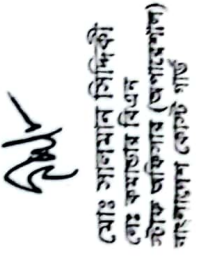 মোঃ সালমান সিদ্দিকী
লেঃ কমান্ডার বিএন
স্টাফ অফিসার (অপারেশন)
বাংলাদেশ কোস্ট গার্ড